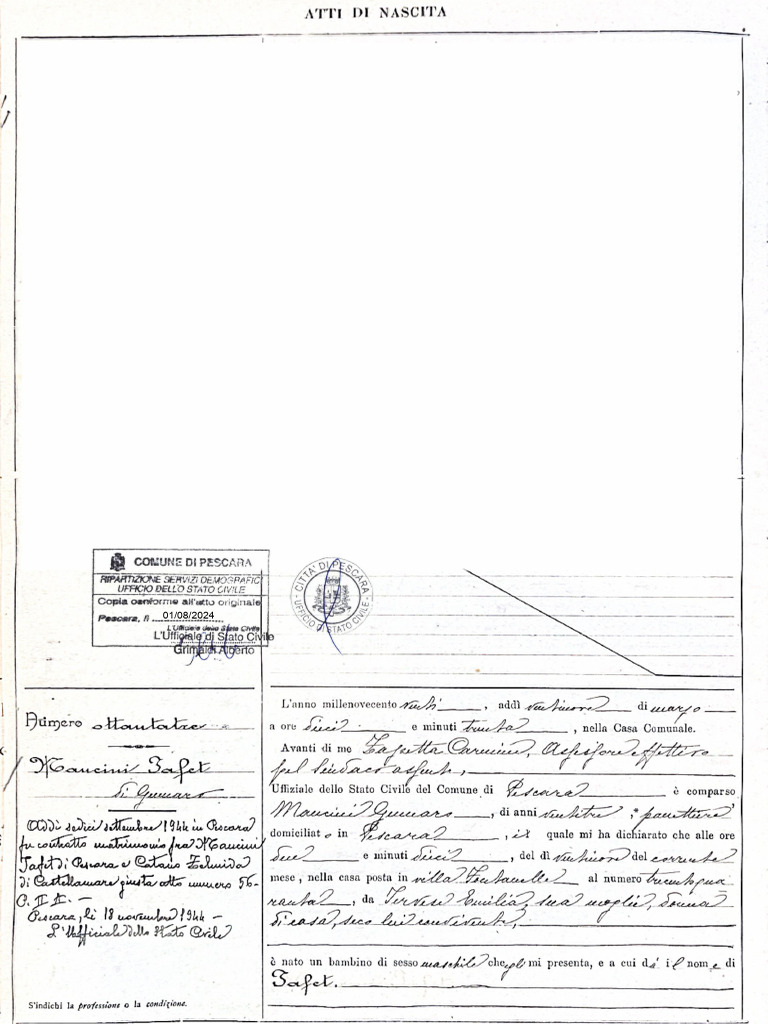 ATTI DI NASCITA
COMUNE DI PESCARA
RIPARTIZIONE SERVIZI DEMOGRAFICI
UFFICIO DELLO STATO CIVILE
Copia conforme all'atto originale
Pescara, lì 01/08/2024
L'Ufficiale dello Stato Civile
L'Ufficiale di Stato Civile
Grimaldi Alberto
CITTÀ DI PESCARA
UFFICIO STATO CIVILE
Numero ottantatre
Mancini Iafet
di Gennaro
Addì sedici settembre 1944 in Pescara
fu contratto matrimonio fra Mancini
Iafet di Pescara e Catano Zelmida
di Castellamare giusta atto numero 56-
P. II A. -
Pescara, lì 18 novembre 1944 -
L'Ufficiale dello Stato Civile
S'indichi la professione o la condizione.
L'anno millenovecento venti, addì ventinove di marzo
a ore dieci e minuti trenta, nella Casa Comunale.
Avanti di me Carmine, Assessore effettivo
pel Sindaco assente,
Uffiziale dello Stato Civile del Comune di Pescara è comparso
Mancini Gennaro, di anni ventitre, * panettiere
domiciliato in Pescara, il quale mi ha dichiarato che alle ore
due e minuti dieci, del dì ventinove del corrente
mese, nella casa posta in villa Fontanelle al numero trecentoqua
ranta, da Emilia, sua moglie, donna
di casa, seco lui convivente,
è nato un bambino di sesso maschile che egli mi presenta, e a cui dà il nome di
Iafet.